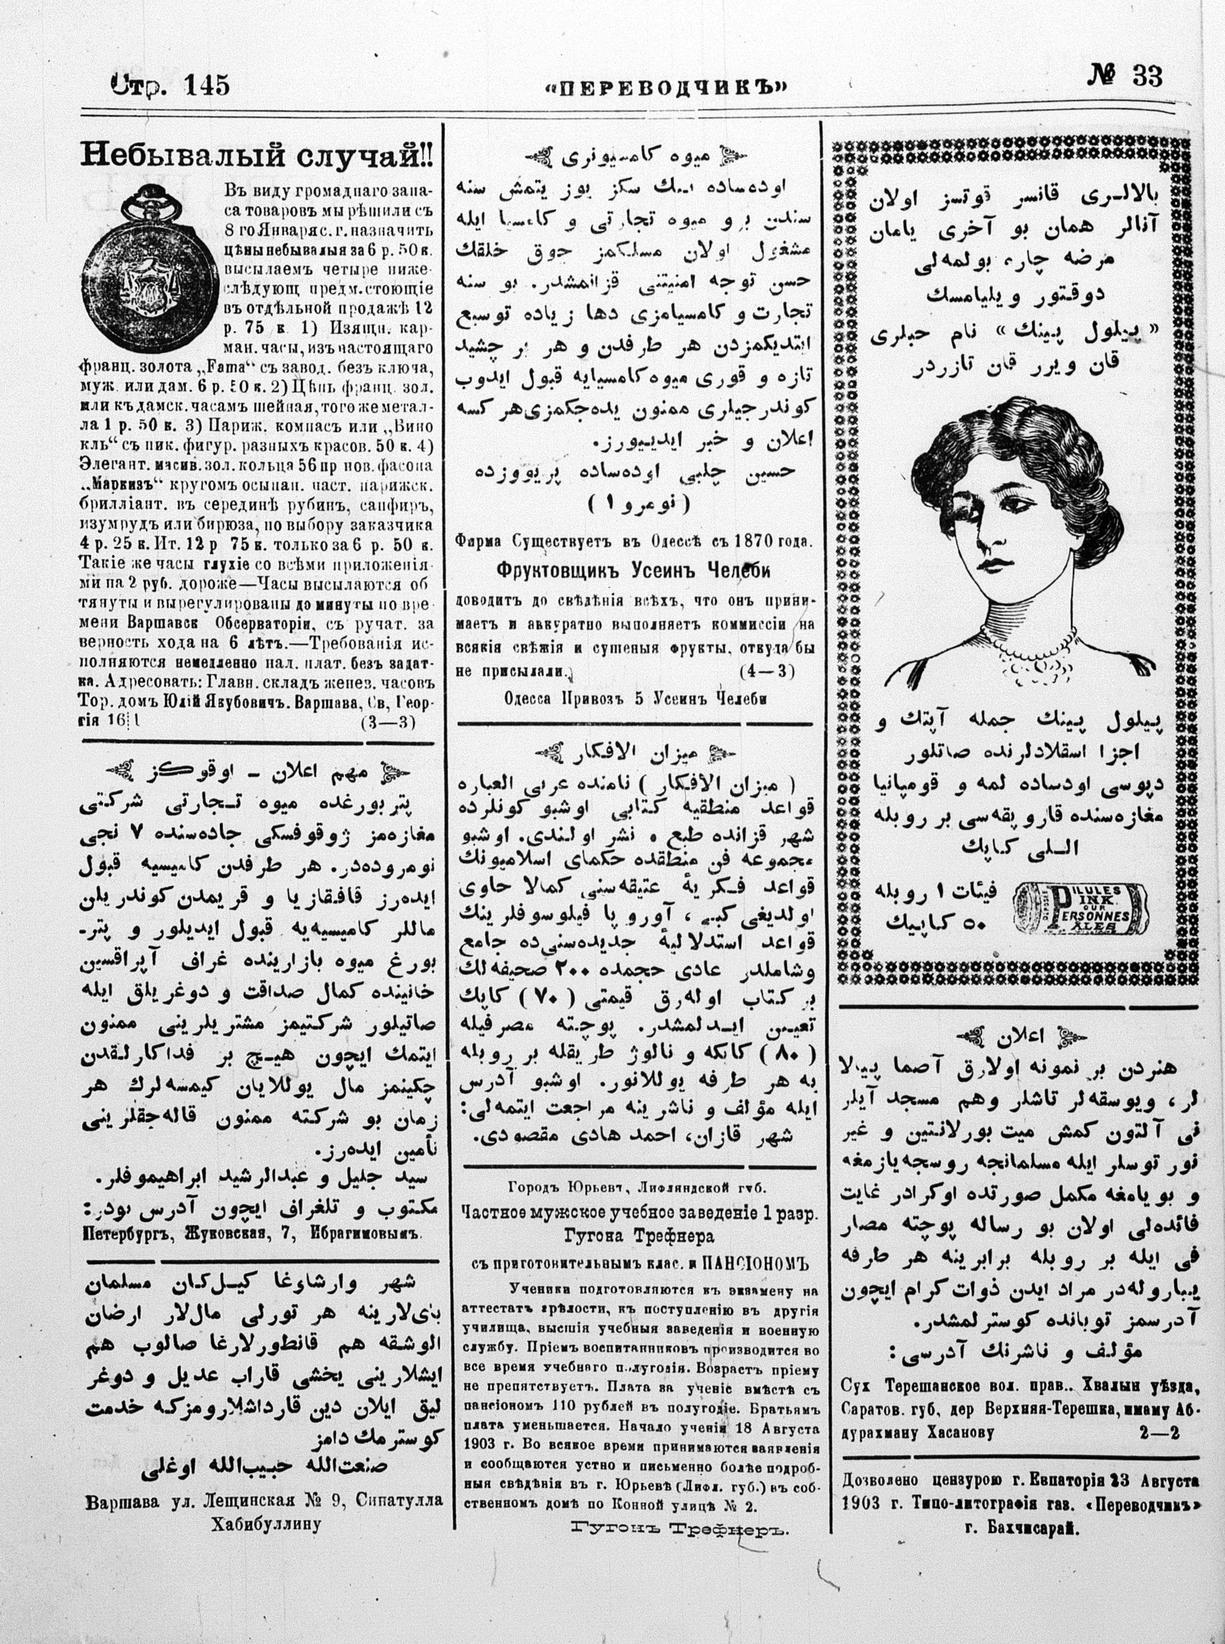 Стр. 145
«ПЕРЕВОДЧИКЪ»
№ 33
Небывалый случай!!
Въ виду громаднаго запа-
са товаровъ мы рѣшили съ
8 го Января с. г. назначить
цѣны небывалыя за 6 р. 50 к.
высылаемъ четыре ниже-
слѣдующ предм. стоющіе
въ отдѣльной продажѣ 12
р. 75 к. 1) Изящн. кар-
ман. часы, изъ настоящаго
франц. золота „Fama“ съ завод. безъ ключа,
муж. или дам. 6 р. 50 к. 2) Цѣпь франц. зол.
или къ дамск. часамъ шейная, того же метал-
ла 1 р. 50 к. 3) Париж. компасъ или „Бино
кль“ съ ник. фигур. разныхъ красов. 50 к. 4)
Элегант. масив. зол. кольца 56 пр нов. фасона
„Маркизъ“ кругомъ осыпан. наст. парижск.
брилліант. въ серединѣ рубин, сапфиръ,
изумрудъ или бирюза, по выбору заказчика
4 р. 25 к. Ит. 12 р 75 к. только за 6 р. 50 к.
Такіе же часы глухіе со всѣми приложенія-
ми на 2 руб. дороже—Часы высылаются об
тянуты и вырегулированы до минуты по вре-
мени Варшавск Обсерваторіи, съ ручат. за
верность хода на 6 лѣтъ.—Требованія ис-
полняются немедленно нал. плат. безъ задат-
ка. Адресовать: Главн. складъ женев. часовъ
Тор. домъ Юлій Якубовичъ. Варшава, Св, Геор-
гія 16
(3—3)
مهم اعلان - اوقوڭز
پتربورغده میوه تجارتی شرکتی
مغازه‌مز ژوقوفسکی جاده‌سنده ۷ نجی
نومروده‌در. هر طرفدن کامیسیه قبول
ایده‌رز قافقازیا و قریمدن کوندریلن
ماللر کامیسیه‌یه قبول ایدیلور و پتر-
بورغ میوه بازارینده غراف آپراقسین
خانینده کمال صداقت و دوغریلق ایله
صاتیلور شرکتیمز مشتریلرینی ممنون
ایتمك ایچون هیچ بر فداکارلقدن
چکینمز مال یوللایان کیمسه‌لرك هر
زمان بو شرکته ممنون قاله‌جقلرینی
تأمین ایده‌رز.
سید جلیل و عبدالرشید ابراهیموفلر.
مکتوب و تلغراف ایچون آدرس بودر:
Петербургъ, Жуковская, 7, Ибрагимовымъ.
شهر وارشاوغا کیلکان مسلمان
بای‌لارینه هر تورلی مال‌لار ارضان
الوشقه هم قانطورلارغا صالوب هم
ایشلارینی یخشی قاراب عدیل و دوغر
لیق ایلان دین قارداشلارومزکه خدمت
کوسترمك دامز
صنعت‌الله حبیب‌الله اوغلی
Варшава ул. Лещинская № 9, Сипатулла
Хабибуллину
میوه کامسیونری
اوده‌ساده بیك سکز یوز یتمش سنه
سندن برو میوه تجارتی و کامسیا ایله
مشغول اولان مسلکمز جوق خلقك
حسن توجه امنیتنی قزانمشدر. بو سنه
تجارت و کامسیامزی دها زیاده توسیع
ابتدیکمزدن هر طرفدن و هر بر چشید
تازه و قوری میوه کامسیایه قبول ایدوب
کوندرجیلری ممنون یده‌جکمزی هر کسه
اعلان و خبر ایدییورز.
حسین چلبی اوده‌ساده پریووزده
( نومرو ۱ )
Фирма Существуетъ въ Одессѣ съ 1870 года.
Фруктовщикъ Усеинъ Челеби
доводитъ до свѣдѣнія всѣхъ, что онъ прини-
маетъ и аккуратно выполняетъ коммиссіи на
всякія свѣжія и сушеныя фрукты, откуда бы
не присылали.
(4—3)
Одесса Привозъ 5 Усеинъ Челеби
میزان الافکار
( میزان الافکار ) نامنده عربی العباره
قواعد منطقیه کتابی اوشبو کونلرده
شهر قزانده طبع و نشر اولندی. اوشبو
مجموعه فن منطقده حکمای اسلامیونك
قواعد فکریهٔ عتیقه‌سنی کمالا حاوی
اولدیغی کبی، آوروپا فیلوسوفلرینك
قواعد استدلالیهٔ جدیده‌سنی‌ده جامع
وشاملدر عادی حجمده ۲۰۰ صحیفه‌لك
بر کتاب اوله‌رق قیمتی ( ۷۰ ) کاپك
تعیین ایدلمشدر. پوچته مصرفیله
( ۸۰ ) کاپکه و نالوژ طریقله بر روبله
به هر طرفه یوللانور. اوشبو آدرس
ایله مؤلف و ناشرینه مراجعت ایتمه‌لی:
شهر قازان، احمد هادی مقصودی.
Городъ Юрьевъ, Лифляндской губ.
Частное мужское учебное заведеніе 1 разр.
Гугона Трефнера
съ приготовительнымъ клас. и ПАНСІОНОМЪ
Ученики подготовляются къ экзамену на
аттестатъ зрѣлости, къ поступленію въ другія
училища, высшія учебныя заведенія и военную
службу. Пріемъ воспитанниковъ производится во
все время учебнаго полугодія. Возрастъ пріему
не препятствуетъ. Плата за ученіе вмѣстѣ съ
пансіономъ 110 рублей въ полугодіе. Братьямъ
плата уменьшается. Начало ученія 18 Августа
1903 г. Во всякое время принимаются заявленія
и сообщаются устно и письменно болѣе подроб-
ныя свѣдѣнія въ г. Юрьевѣ (Лифл. губ.) въ соб-
ственномъ домѣ по Конной улицѣ № 2.
Гугонъ Трефнеръ.
بالالری قانسز قوتسز اولان
آنالر همان بو آخری یامان
مرضه چاره بولمه‌لی
دوقتور ویلیامسك
« پیلول پینك » نام حبلری
قان ویرر قان تازردر
پیلول پینك جمله آپتك و
اجزا اسقلادلرنده صاتلور
دپوسی اودساده لمه و قومپانیا
مغازه‌سنده قاروپقه‌سی بر روبله
اللی کاپك
فیئات ۱ روبله
۵۰ کاپیك
PILULES
PINK
OUR
PERSONNES
PALES
اعلان
هنردن بر نمونه اولارق آصما پیالا
لر، ویوسقه‌لر تاشلر وهم مسجد آیلر
فی آلتون کمش میت بورلانتین و غیر
نور توسلر ایله مسلمانجه روسجه یازمغه
و بویامغه مکمل صورتده اوکرادر غایت
فائده‌لی اولان بو رساله پوچته مصار
فی ایله بر روبله برابرینه هر طرفه
یبارولەدر مراد ایدن ذوات کرام ایچون
آدرسمز توبانده کوسترلمشدر.
مؤلف و ناشرنك آدرسی:
Сух Терешанское вол. прав.. Хвалын уѣзда,
Саратов. губ, дер Верхняя-Терешка, имаму Аб-
дурахману Хасанову
2—2
Дозволено цензурою г. Евпаторія 23 Августа
1903 г. Типо-литографія газ. «Переводчикъ»
г. Бахчисарай.